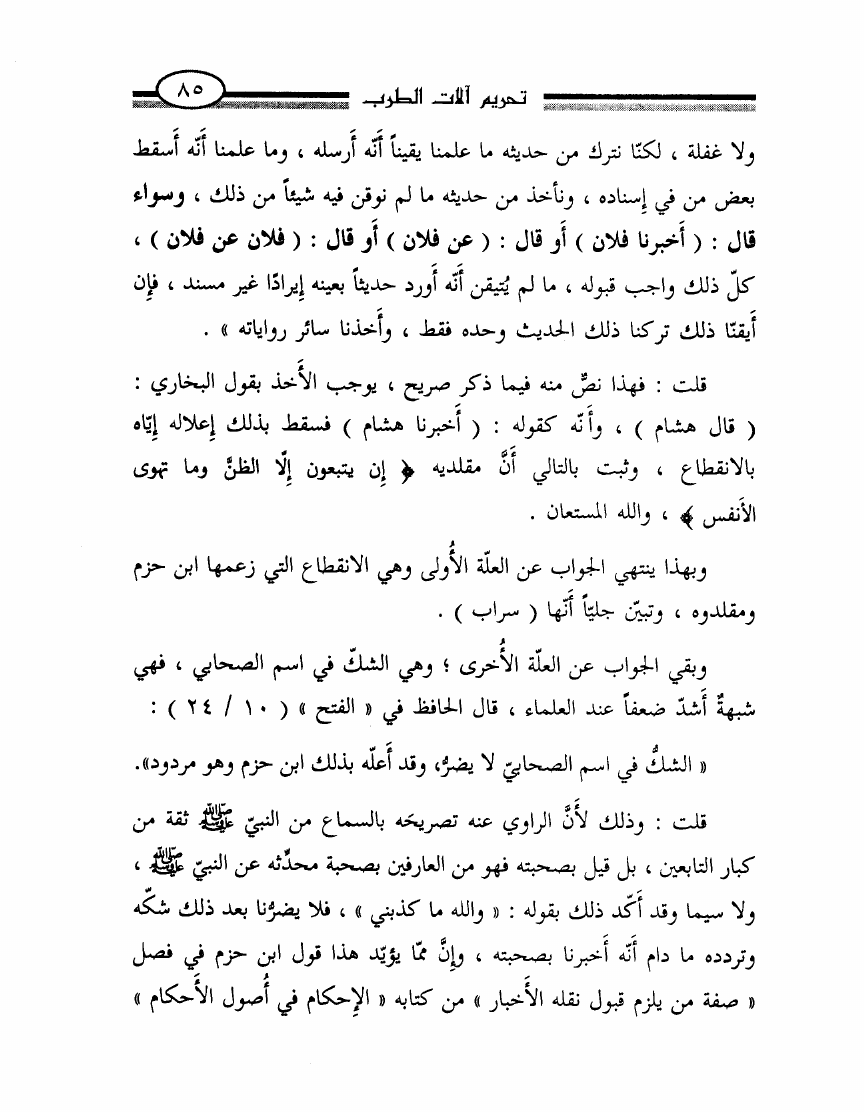 تحريم آلات الطرب ٨٥
ولا غفلة ، لكنّا نترك من حديثه ما علمنا يقيناً أنَّه أَرسله ، وما علمنا أنَّه أَسقط
بعض من في إسناده ، ونأخذ من حديثه ما لم نوقن فيه شيئاً من ذلك ، وسواء
قال : ( أَخبرنا فلان ) أو قال : ( عن فلان ) أو قال : ( فلان عن فلان ) ،
كلّ ذلك واجب قبوله ، ما لم يُتيقن أنَّه أَورد حديثاً بعينه إيرادًا غير مسند ، فإن
أَيقنّا ذلك تركنا ذلك الحديث وحده فقط ، وأَخذنا سائر رواياته » .
قلت : فهذا نصٌّ منه فيما ذكر صريح ، يوجب الأَخذ بقول البخاري :
( قال هشام ) ، وأنَّه كقوله : ( أَخبرنا هشام ) فسقط بذلك إعلاله إيّاه
بالانقطاع ، وثبت بالتالي أنَّ مقلديه ﴿ إن يتبعون إلّا الظنَّ وما تهوى
الأَنفس ﴾ ، والله المستعان .
وبهذا ينتهي الجواب عن العلّة الأُولى وهي الانقطاع التي زعمها ابن حزم
ومقلدوه ، وتبيّن جليّاً أنَّها ( سراب ) .
وبقي الجواب عن العلّة الأُخرى ؛ وهي الشكّ في اسم الصحابي ، فهي
شبهةٌ أَشدّ ضعفاً عند العلماء ، قال الحافظ في « الفتح » ( ١٠ / ٢٤ ) :
« الشكُّ في اسم الصحابيّ لا يضرُّ، وقد أَعلّه بذلك ابن حزم وهو مردود».
قلت : وذلك لأنَّ الراوي عنه تصريحَه بالسماع من النبيّ ﷺ ثقة من
كبار التابعين ، بل قيل بصحبته فهو من العارفين بصحبة محدِّثه عن النبيّ ﷺ ،
ولا سيما وقد أَكّد ذلك بقوله : « والله ما كذبني » ، فلا يضرُّنا بعد ذلك شكّه
وتردده ما دام أنَّه أَخبرنا بصحبته ، وإنَّ ممّا يؤيّد هذا قول ابن حزم في فصل
« صفة من يلزم قبول نقله الأَخبار » من كتابه « الإحكام في أُصول الأَحكام »